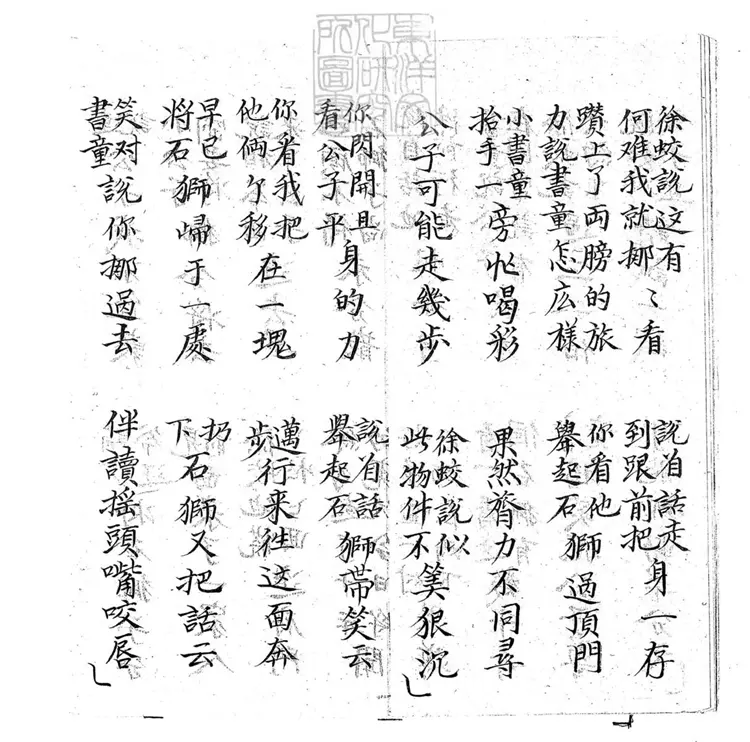 東洋文
化研究
所圖書
徐蛟說这有何难我就挪〻看
說着話走到跟前把身一存
躦上了両膀的旅力說書童怎広樣
你看他舉起石獅過頂門
小書童抬手一旁忙喝彩
果然膂力不同尋
公子可能走幾步
徐蛟說似此物件不筭狠沉
你閃開且看公子平身的力
說着話舉起石獅帶笑云
你看我把他俩个移在一塊
邁步行来徃这面奔
早已將石獅歸于一處
扔下石獅又把話云
笑对書童說你挪過去
伴讀摇頭嘴咬唇